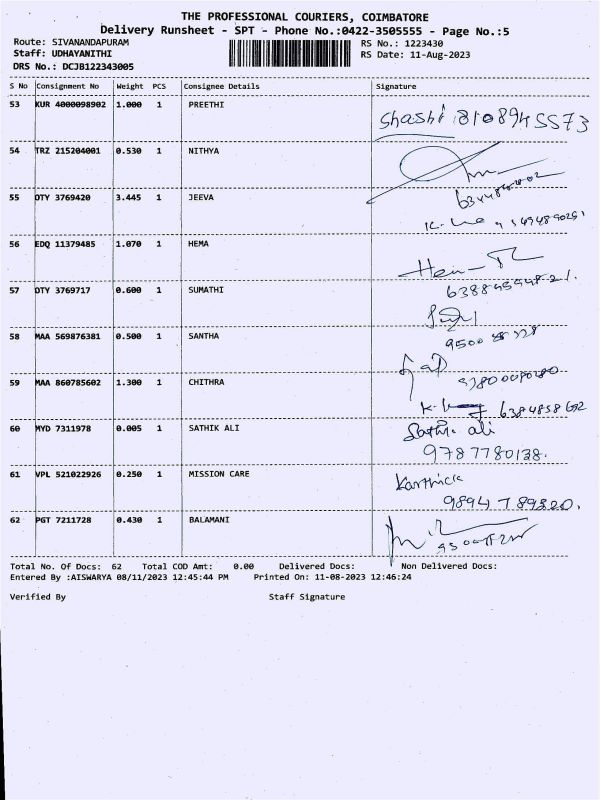 THE PROFESSIONAL COURIERS, COIMBATORE
Delivery Runsheet - SPT - Phone No.:0422-3505555 - Page No.:5
Route: SIVANANDAPURAM RS No.: 1223430
Staff: UDHAYANITHI RS Date: 11-Aug-2023
DRS No.: DCJB122343005
S No Consignment No Weight PCS Consignee Details Signature
53 KUR 4000098902 1.000 1 PREETHI
Shashi 8108945573
54 TRZ 215204001 0.530 1 NITHYA
55 DTY 3769420 3.445 1 JEEVA
56 EDQ 11379485 1.070 1 HEMA
57 DTY 3769717 0.600 1 SUMATHI
58 MAA 569876381 0.500 1 SANTHA
59 MAA 860785602 1.300 1 CHITHRA
60 MYD 7311978 0.005 1 SATHIK ALI
Sathik ali
9787780138.
61 VPL 521022926 0.250 1 MISSION CARE
Karthick
9894789320.
62 PGT 7211728 0.430 1 BALAMANI
Total No. Of Docs: 62 Total COD Amt: 0.00 Delivered Docs: Non Delivered Docs:
Entered By :AISWARYA 08/11/2023 12:45:44 PM Printed On: 11-08-2023 12:46:24
Verified By Staff Signature